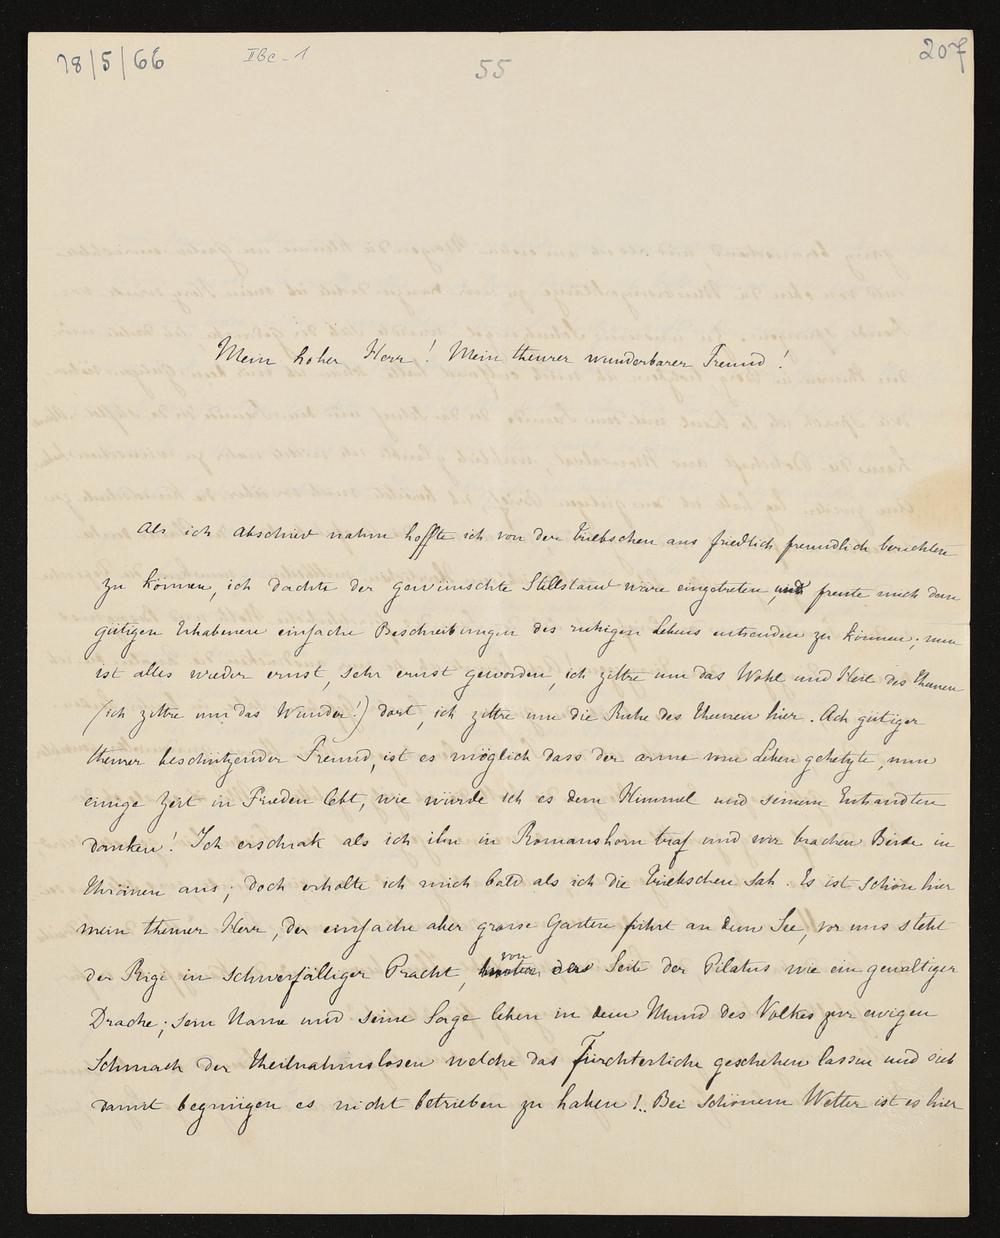 18/5/66 II Bc - 1 55 207
Mein hoher Herr! Mein theurer wunderbarer Freund!
Als ich Abschied nahm hoffte ich von der Triebschen aus friedlich freundlich berichten
zu können, ich dachte der gewünschte Stillstand wäre eingetreten, und freute mich dem
gütigen Erhabenen einfache Beschreibungen des ruhigen Lebens entsenden zu können; nun
ist alles wieder ernst, sehr ernst geworden, ich zittre um das Wohl und Heil des Theuren
(ich zittre um das Wunder!) dort, ich zittre um die Ruhe des Theuren hier. Ach gütiger
theurer beschützender Freund, ist es möglich dass der arme vom Leben gehetzte, nun
einige Zeit in Frieden lebt, wie würde ich es dem Himmel und seinem Entsandten
danken! Ich erschrak als ich ihn in Romanshorn traf und wir brachen Beide in
Thränen aus; doch erholte ich mich bald als ich die Triebschen sah. Es ist schön hier
mein theurer Herr, der einfache aber grosse Garten führt an dem See, vor uns steht
der Rigi in schwerfälliger Pracht, von der Seite der Pilatus wie ein gewaltiger
Drache; sein Name und seine Sage leben in dem Mund des Volkes zur ewigen
Schmach der Theilnahmslosen welche das Fürchterliche geschehen lassen und sich
damit begnügen es nicht betrieben zu haben!.. Bei schönem Wetter ist es hier